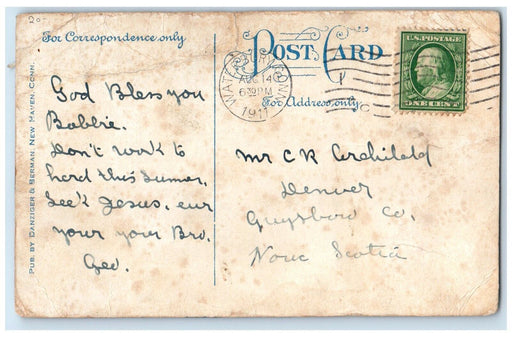 120-
For Correspondence only
POST CARD
For Address only
WATERBURY CONN.
AUG 14
6 30 PM
1911
U.S. POSTAGE
ONE CENT
PUB. BY DANZIGER & BERMAN, NEW HAVEN, CONN.
God Bless you
Bobbie.
Don't work to
hard this Sumer,
Seek Jesus, eur
your your Bro,
Geo.
Mr C R Archibald
Denver
Guysboro Co.
Nove Scotia